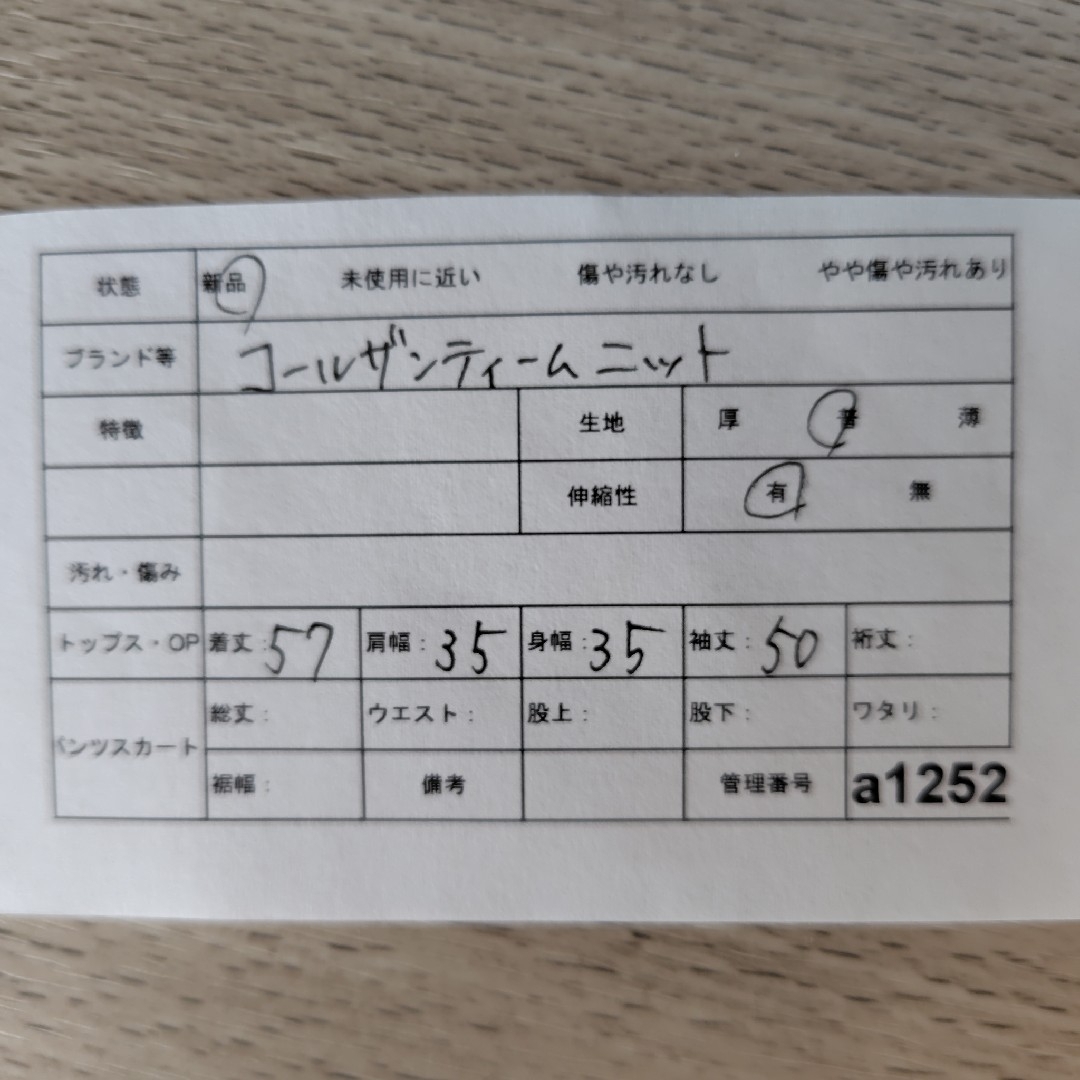 状態 新品 未使用に近い 傷や汚れなし やや傷や汚れあり
ブランド等 コールザンティームニット
特徴 生地 厚 普 薄
伸縮性 有 無
汚れ・傷み
トップス・OP 着丈:57 肩幅:35 身幅:35 袖丈:50 裄丈:
パンツスカート 総丈: ウエスト: 股上: 股下: ワタリ:
裾幅: 備考 管理番号 a1252